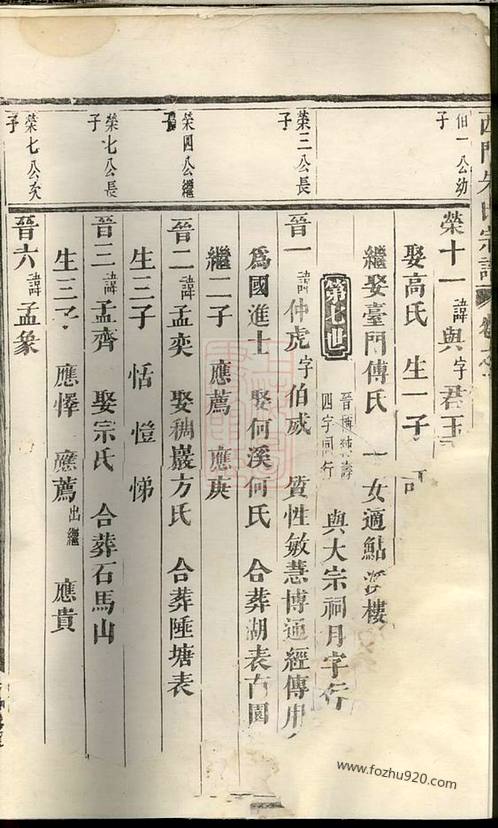 西門朱氏宗譜
伯一公幼子
榮十一 諱與 字君玉
娶高氏 生一子
繼娶臺門傅氏 一女適鮎溪樓
第七世 四字同行 與大宗祠月字行
榮三公長子
晉一 諱仲虎 字伯威 質性敏慧博通經傳
為國進士 娶何溪何氏 合葬湖表古園
繼二子 應薦 應庚
榮四公繼子
晉二 諱孟奕 娶稠巖方氏 合葬陲塘表
生三子 恬 愷 悌
榮七公長子
晉三 諱孟齊 娶宗氏 合葬石馬山
生三子 應懌 應薦出繼 應貴
榮七公次子
晉六 諱孟象
www.fozhu920.com